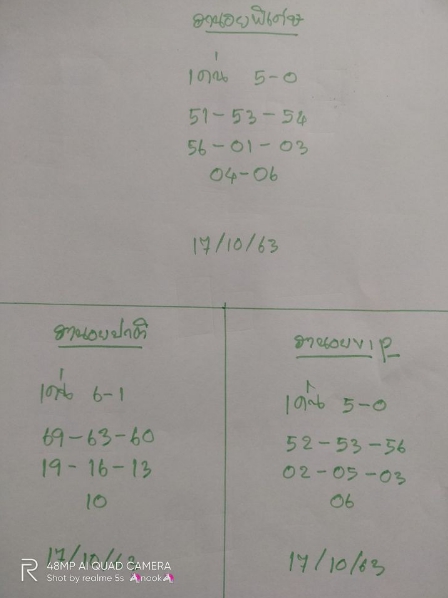 ฮานอยพิเศษ
เด่น 5-0
51-53-54
56-01-03
04-06
17/10/63
ฮานอยปกติ
เด่น 6-1
69-63-60
19-16-13
10
17/10/63
ฮานอยVIP
เด่น 5-0
52-53-56
02-05-03
06
17/10/63
48MP AI QUAD CAMERA
Shot by realme 5s nook